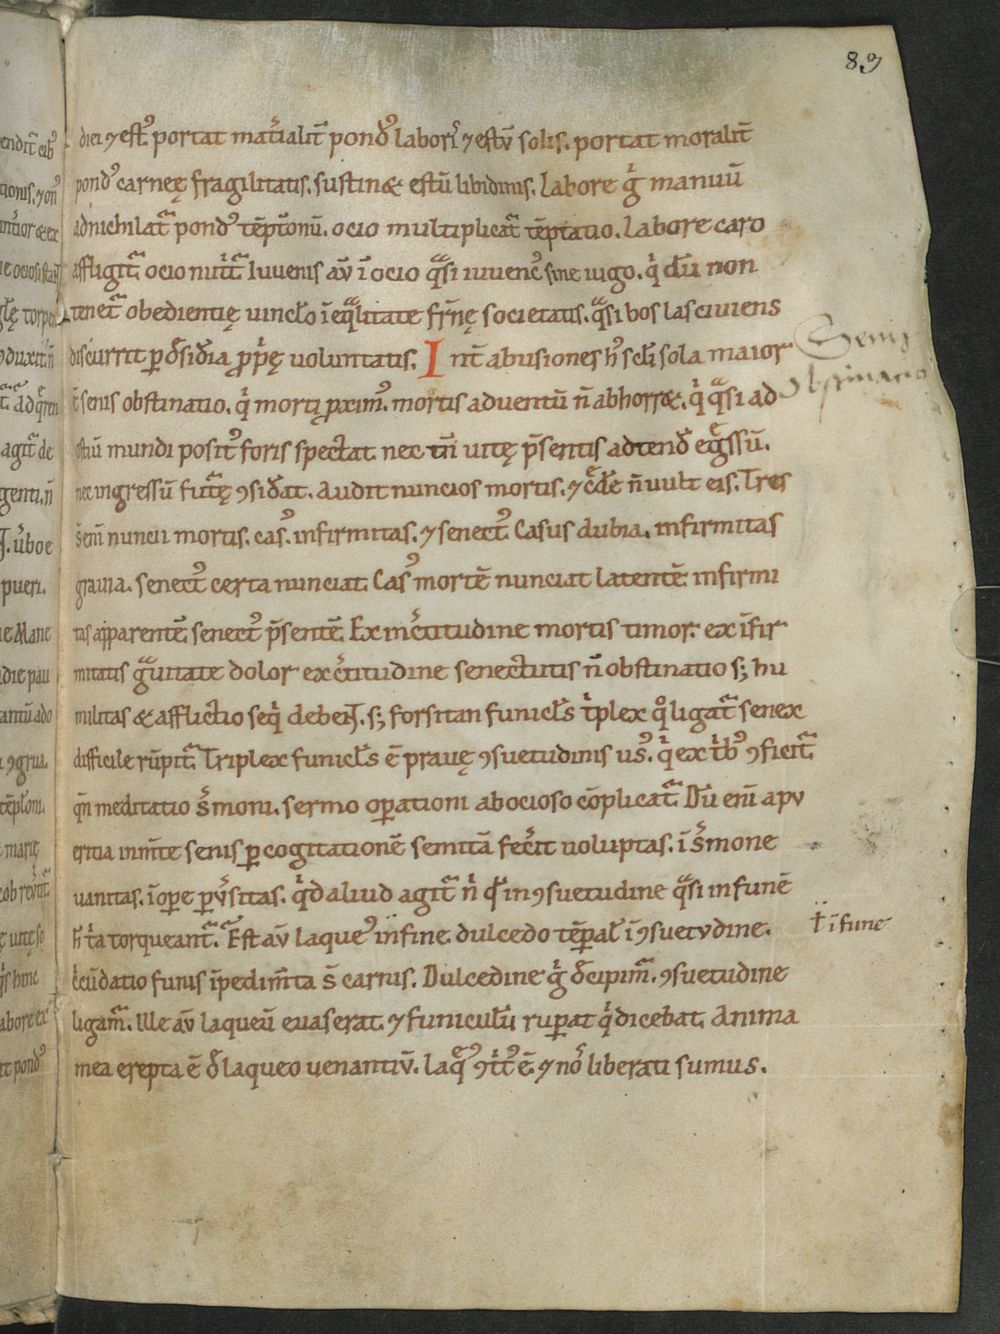 89
diei ⁊ estꝰ portat mat͛ialit͛ pondꝰ labori͛s ⁊ estū solis. portat moralit͛
pondꝰ carneę fragilitatis. sustin& estū libidinis. Labore g͛ manuū
adnichilat᷑ pondꝰ tēptōnū. ocio multiplicat᷑ tēptatio. Labore caro
affligit᷑ ocio nut͛t᷑ Iuvenis aū ī ocio qᷓsi iuuencꝰ sine iugo. qͥ dū non
tenet᷑ obedientię uincl̄o ī eqᷓlitate fr̄nę societatis. qᷓsi bos lasciviens
discurrit ꝑ d͛sid͛ia ꝓp͛ę uoluntatis. Int͛ abusiones hꝰ scl̄i sola maior
ē senis obstinatio. qͥ morti ꝓximꝰ. mortis adventū n̄ abhorr&. qͥ qᷓsi ad
ostiū mundi positꝰ foris spectat nec tn̄ uitę p̄sentis adtend͛ eg͛ssū.
nec ingressū fut᷑ę ꝯsid͛at. Audit nuncios mortis. ⁊ c͛d͛e n̄ uult eis. Tres
s̄ eni͛ nuncii mortis. casꝰ. infirmitas. ⁊ senectꝰ Casus dubia. infirmitas
gravia. senectꝰ certa nunciat. Casꝰ mortē nunciat latentē infirmi
tas apparentē senectꝰ p̄sentē. Ex inc͛titudine mortis timor. ex īfir
mitatis gᷓuitate dolor ex c͛titudine senectutis n̄ obstinatio s; hu
militas & afflictio seqͥ deben̄t. s; forsitan funicl̄s tͥplex qͦ ligat᷑ senex
difficile rūpit᷑ Triplex funicl̄s ē pravę ꝯsuetudinis usꝰ. qͥ ex tͥbꝰ ꝯficit᷑
qn̄ meditatio s͛moni. sermo oꝑationi ab ocioso cōplicat᷑ Dū eni͛ apu
ertia in m̄te senis ꝑ cogitationē semitā fec͛it uoluptas. ī s͛mone
uanitas. ī oꝑe ꝑv͛sitas. qͥd aliud agit᷑ nͥ q͛ in ꝯsuetudine qᷓsi in funē
h̄ tͥa torqueant᷑. Est aū laqueꝰ in fine. dulcedo tēꝑal̄ ī ꝯsuetudine.
ł ī fune
c͛cūdatio funis īpedim̄ta s̄ carnis. Dulcedine g͛ d͛cipim᷑. ꝯsuetudine
ligam᷑. Ille aū laqueū evaserat ⁊ funiculū ruperat qͥ dicebat. Anima
mea erepta ē d͛ laqueo uenantiū. laqꝰ ꝯtͥtꝰ ē ⁊ nos͛ liberati sumus.
Senis
obstinatio